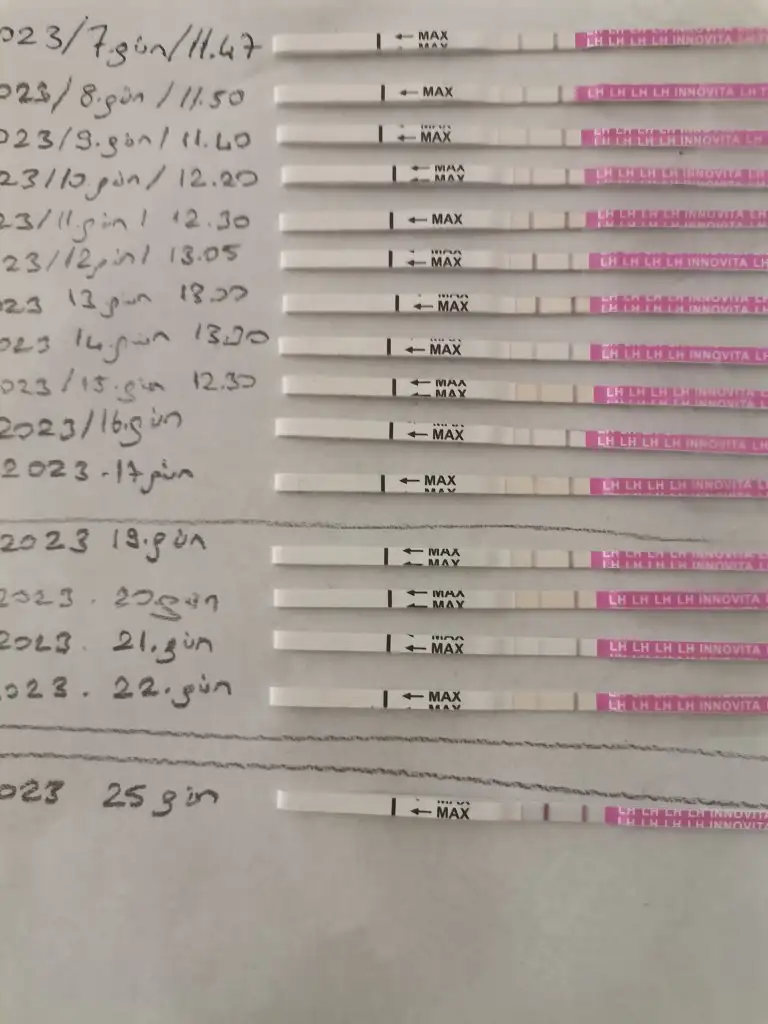 023/7.gün/11.47 MAX MAX LH LH LH LH INNOVITA LH
023/8.gün/11.50 MAX LH LH LH LH INNOVITA LH T
023/9.gün/11.40 MAX MAX LH LH LH LH INNOVITA LH
23/10.gün/12.20 MAX MAX LH LH LH LH INNOVITA
23/11.gün/12.30 MAX LH LH LH LH INNOVITA
23/12.gün/13.05 MAX MAX LH LH LH LH INNOVITA LH
023 13.gün MAX MAX LH LH LH LH INNOVITA
023 14.gün MAX MAX LH LH LH LH INNOVITA LH
023/15.gün 12.30 MAX MAX LH LH LH LH INNOVITA
2023/16.gün MAX MAX LH LH LH LH INNOVITA
2023.17.gün MAX MAX LH LH LH LH INNOVITA L
2023 19.gün MAX MAX LH LH LH LH INNOVITA
2023.20.gün MAX MAX LH LH LH LH INNOVITA
2023.21.gün MAX MAX LH LH LH LH INNOVITA
2023.22.gün MAX MAX LH LH LH LH INNOVITA
023 25 gün MAX MAX LH LH LH LH INNOVITA